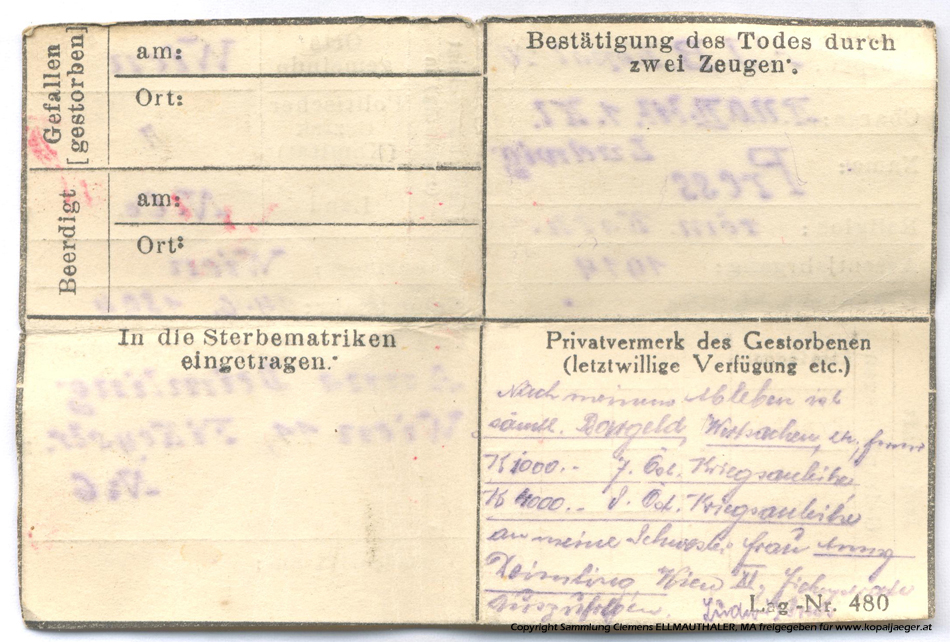 Gefallen
[gestorben]
am:
Ort:
Beerdigt
am:
Ort:
Bestätigung des Todes durch
zwei Zeugen.
In die Sterbematriken
eingetragen.
Privatvermerk des Gestorbenen
(letztwillige Verfügung etc.)
Nach meinem Ableben ist
sämtl. Bargeld, Wertsachen, etc, ferner
K 1000.- 7. Öst. Kriegsanleihe
K 4000.- 8. Öst. Kriegsanleihe
an meine Schwester Frau Anny
Deimling Wien XI,
auszufolgen.
Lag.-Nr. 480
Copyright Sammlung Clemens ELLMAUTHALER, MA freigegeben für www.kopaljaeger.at